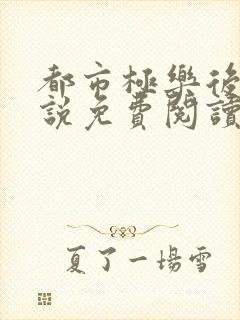 都市極樂後
說免費閱讀
夏了一場雪